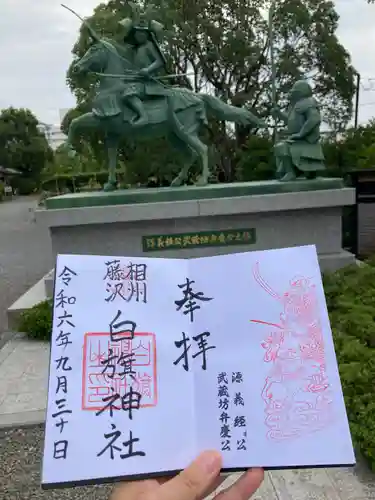 源義経公武蔵坊弁慶公之像
奉拝
源義経公
武蔵坊弁慶公
相州
藤沢
白旗神社
令和六年九月三十日